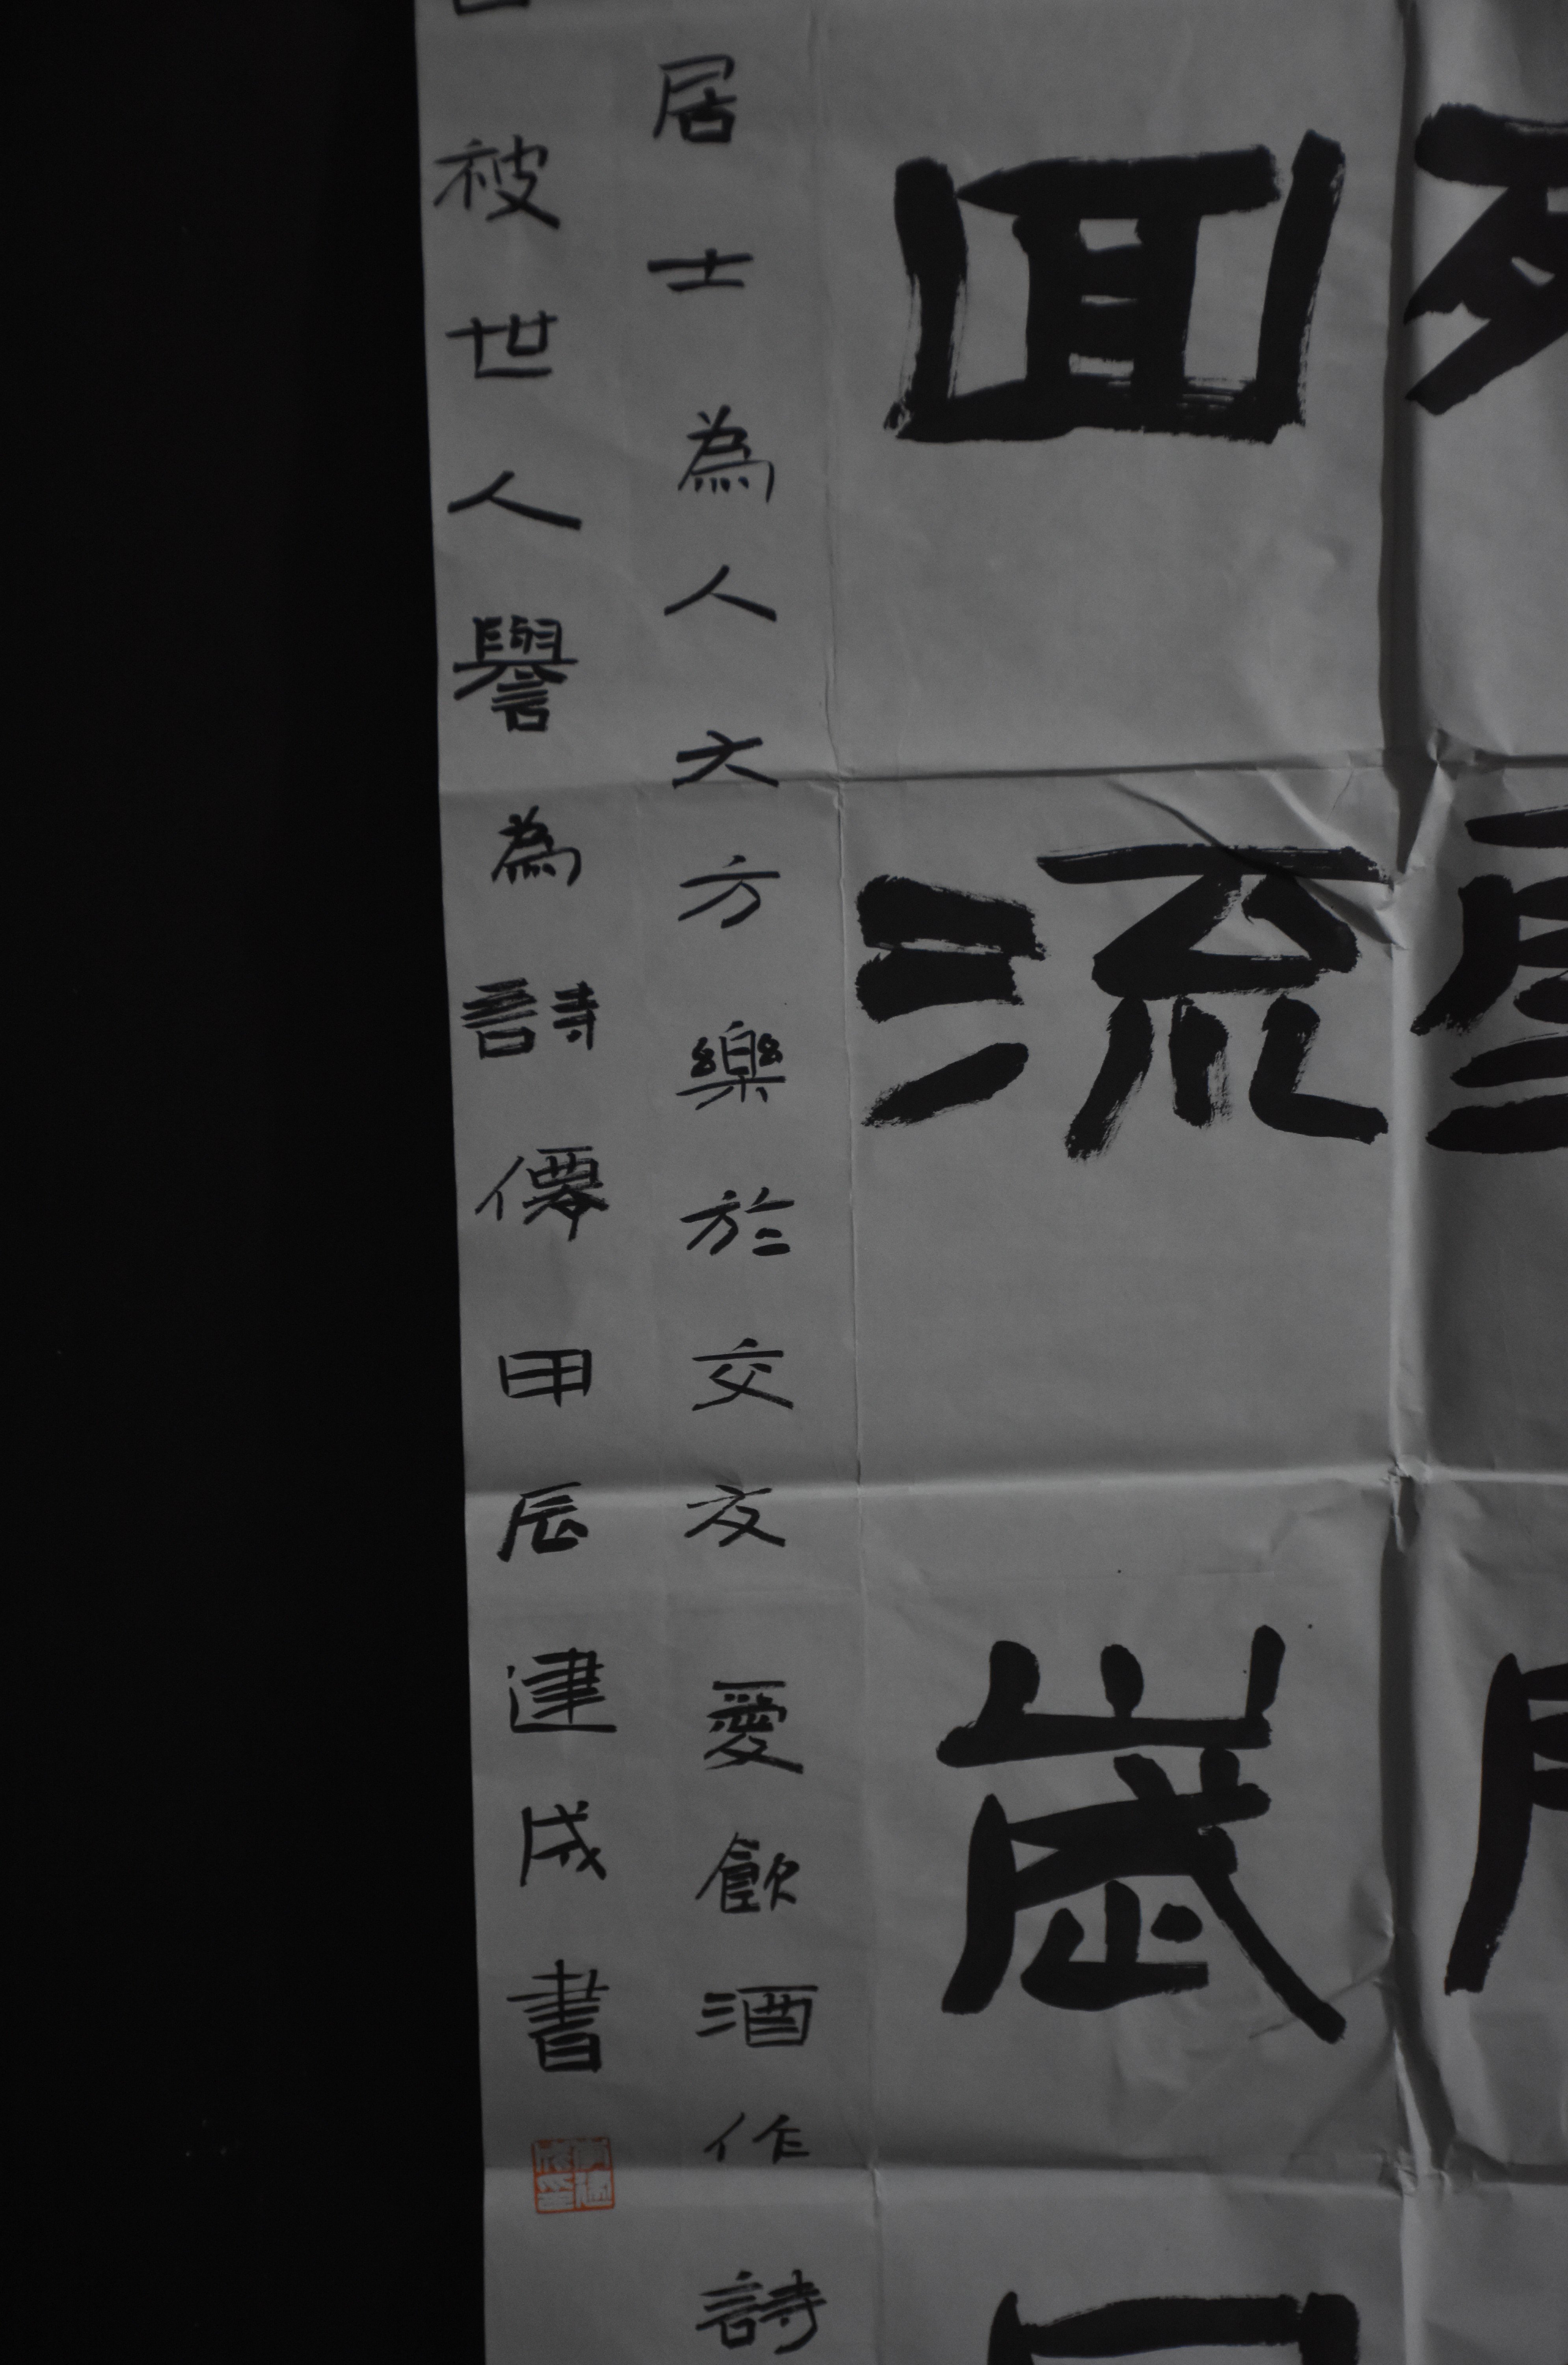 流歲
居士為人大方樂於交友愛飲酒作詩
被世人譽為詩僊甲辰建成書